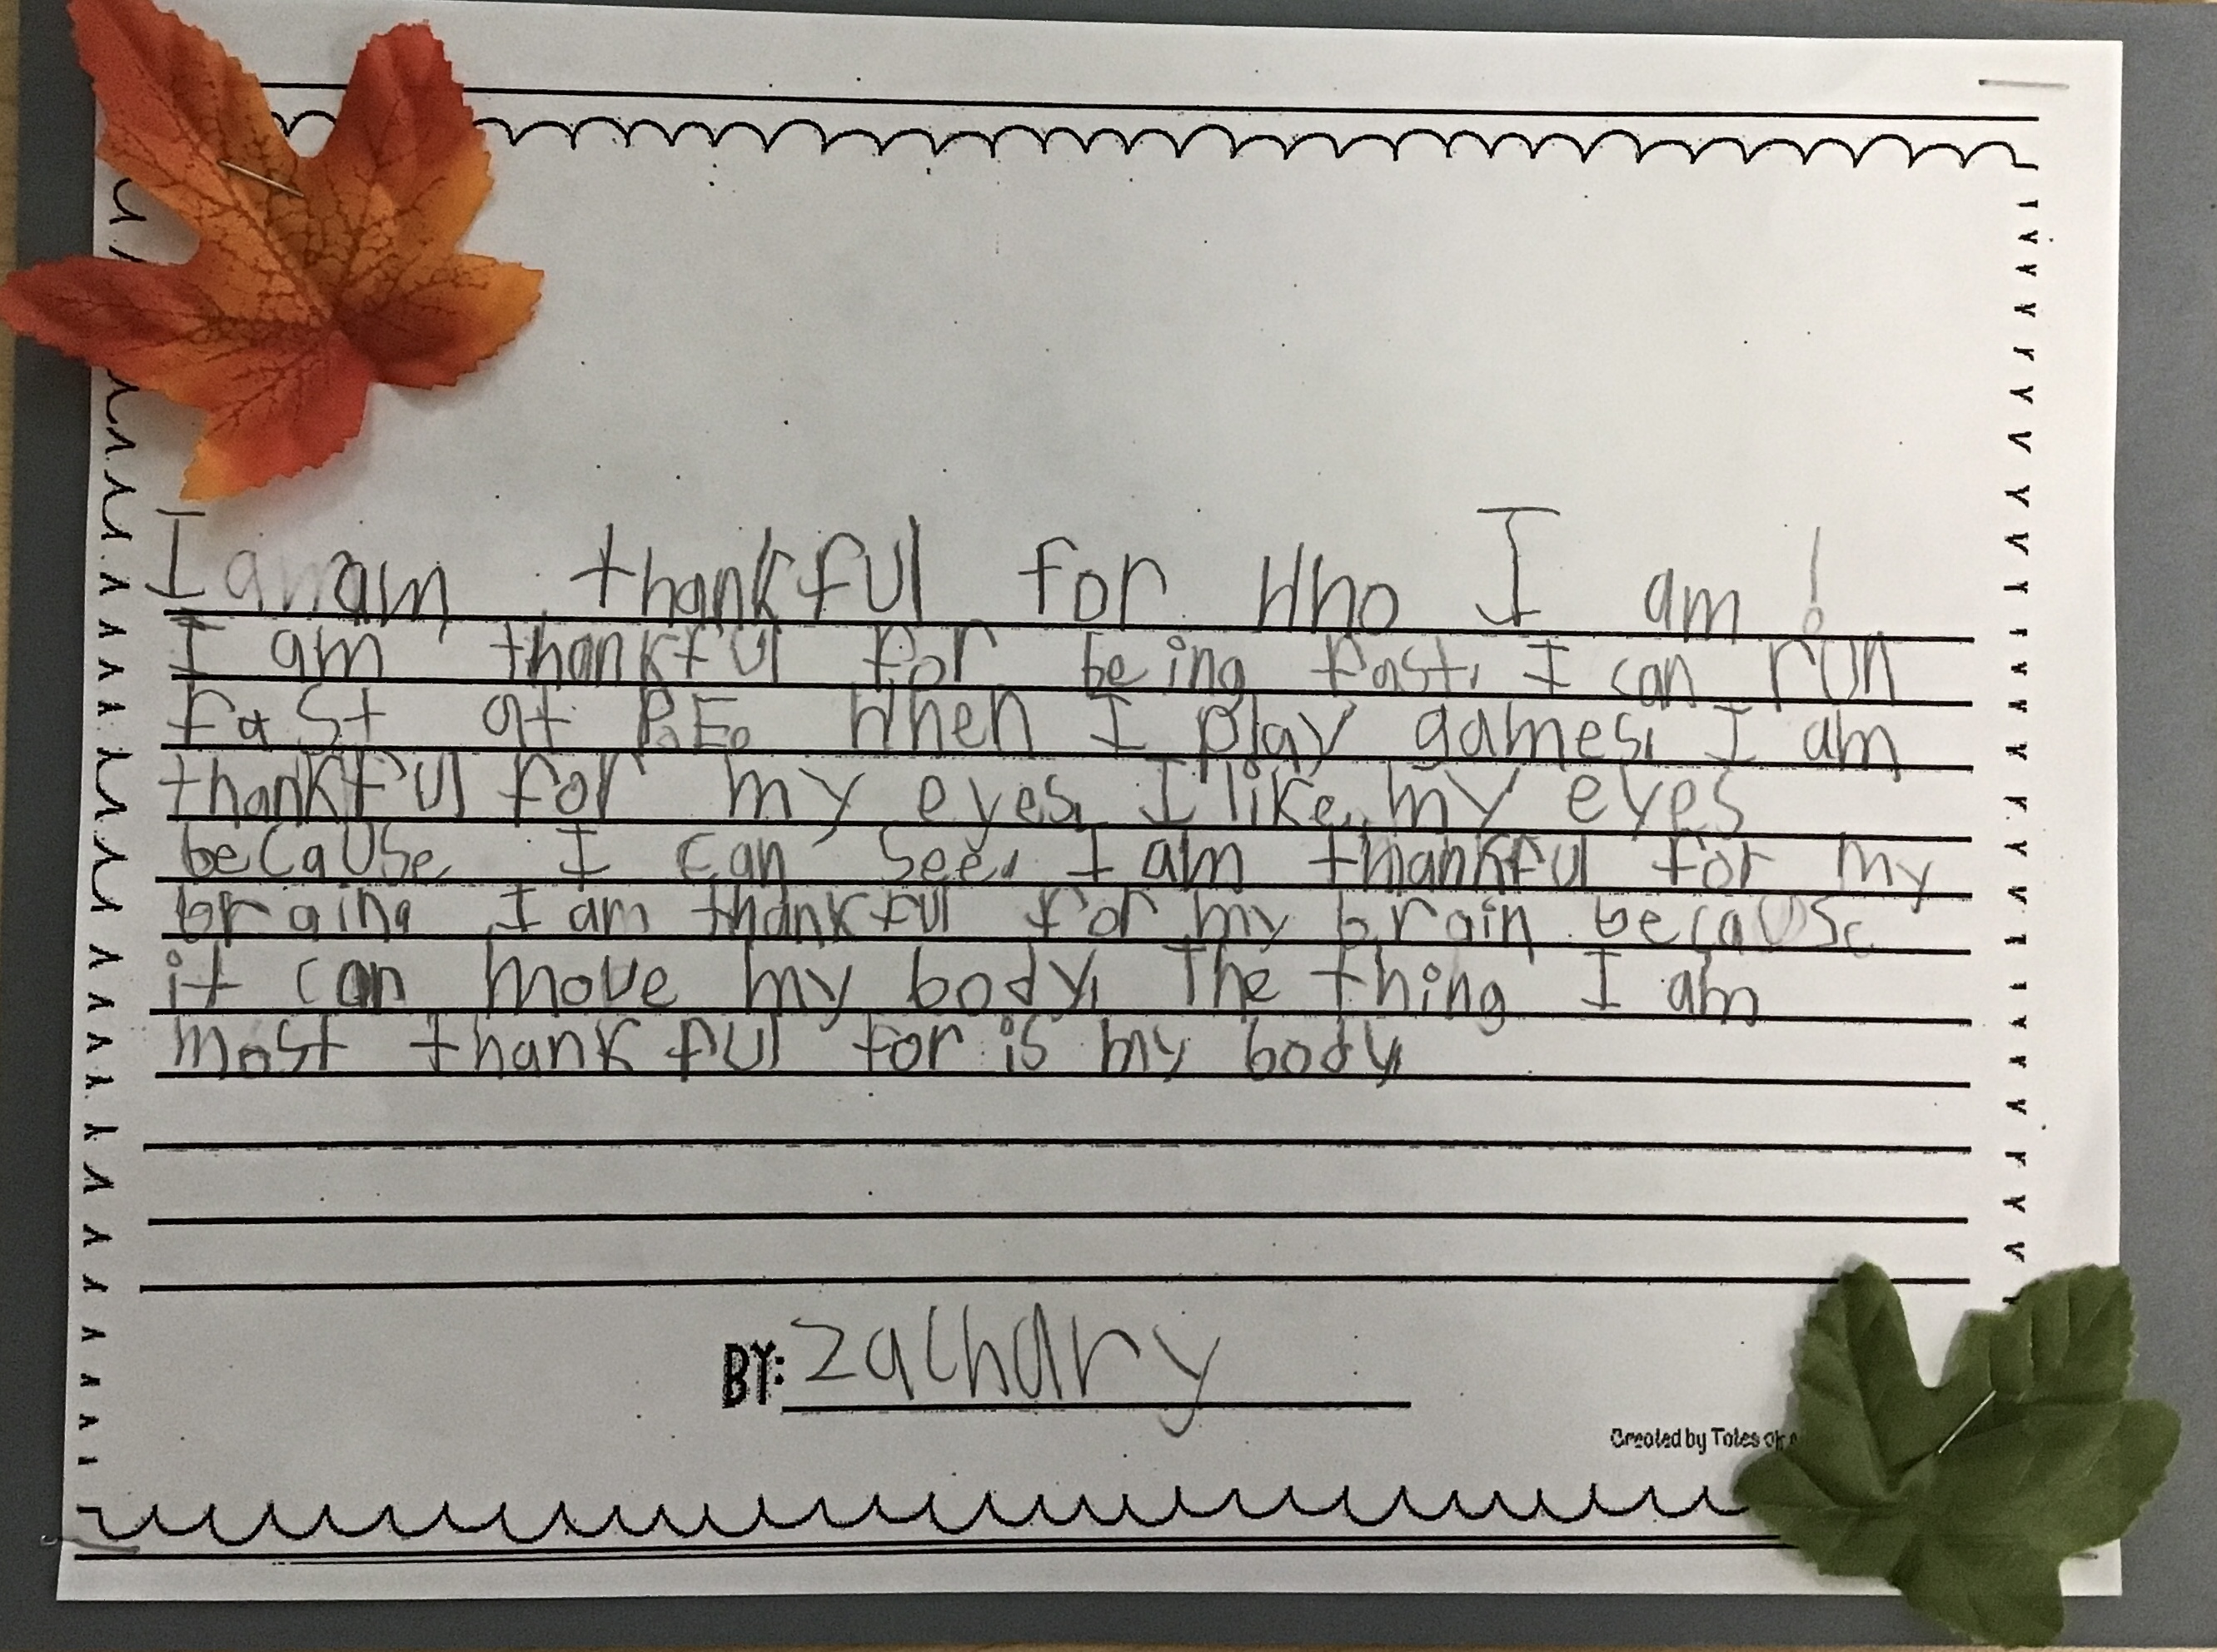 I am thankful for Who I am!
I am thankful for being fast. I can run
fast at P.E. When I play games. I am
thankful for my eyes. I like my eyes
because I can see. I am thankful for my
brain. I am thankful for my brain because
it can move my body. The thing I am
most thankful for is my body.
BY: zachary
Created by Tales of